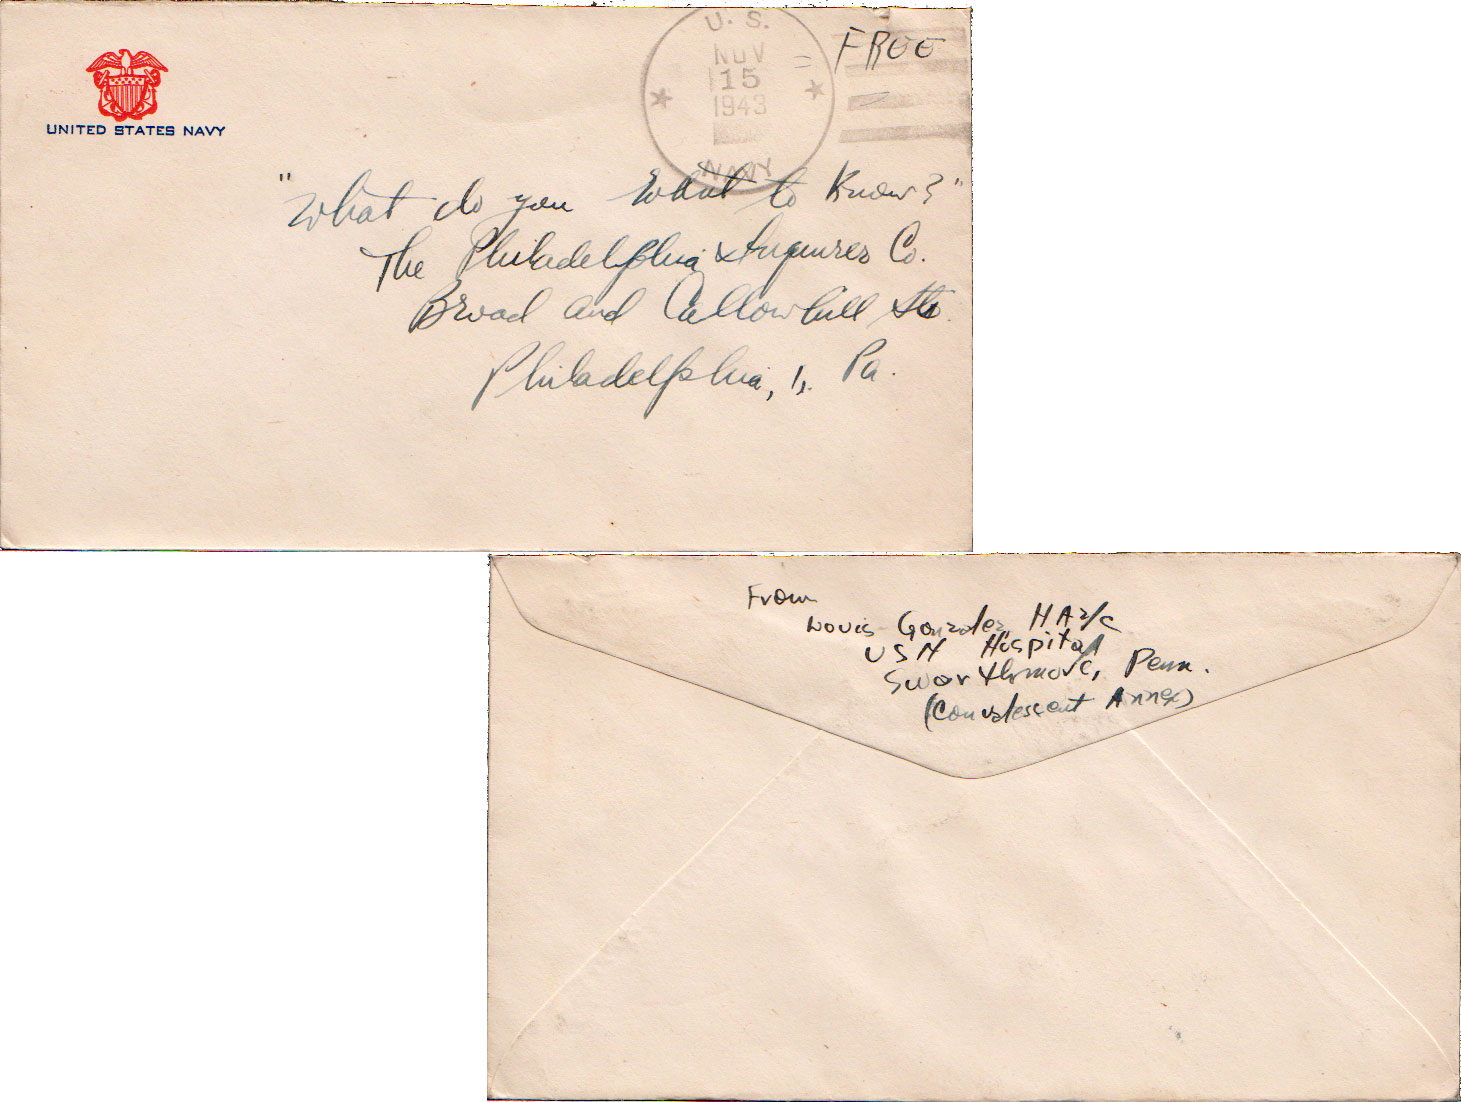 UNITED STATES NAVY
U. S.
NOV
15
1943
NAVY
= FREE
"What do you Want to Know?"
The Philadelphia Inquirer Co.
Broad and Callowhill Sts.
Philadelphia, 1, Pa.
From
Louis Gonzales HA2/c
USN Hospital
Swarthmore, Penn.
(Convalescent Annex)